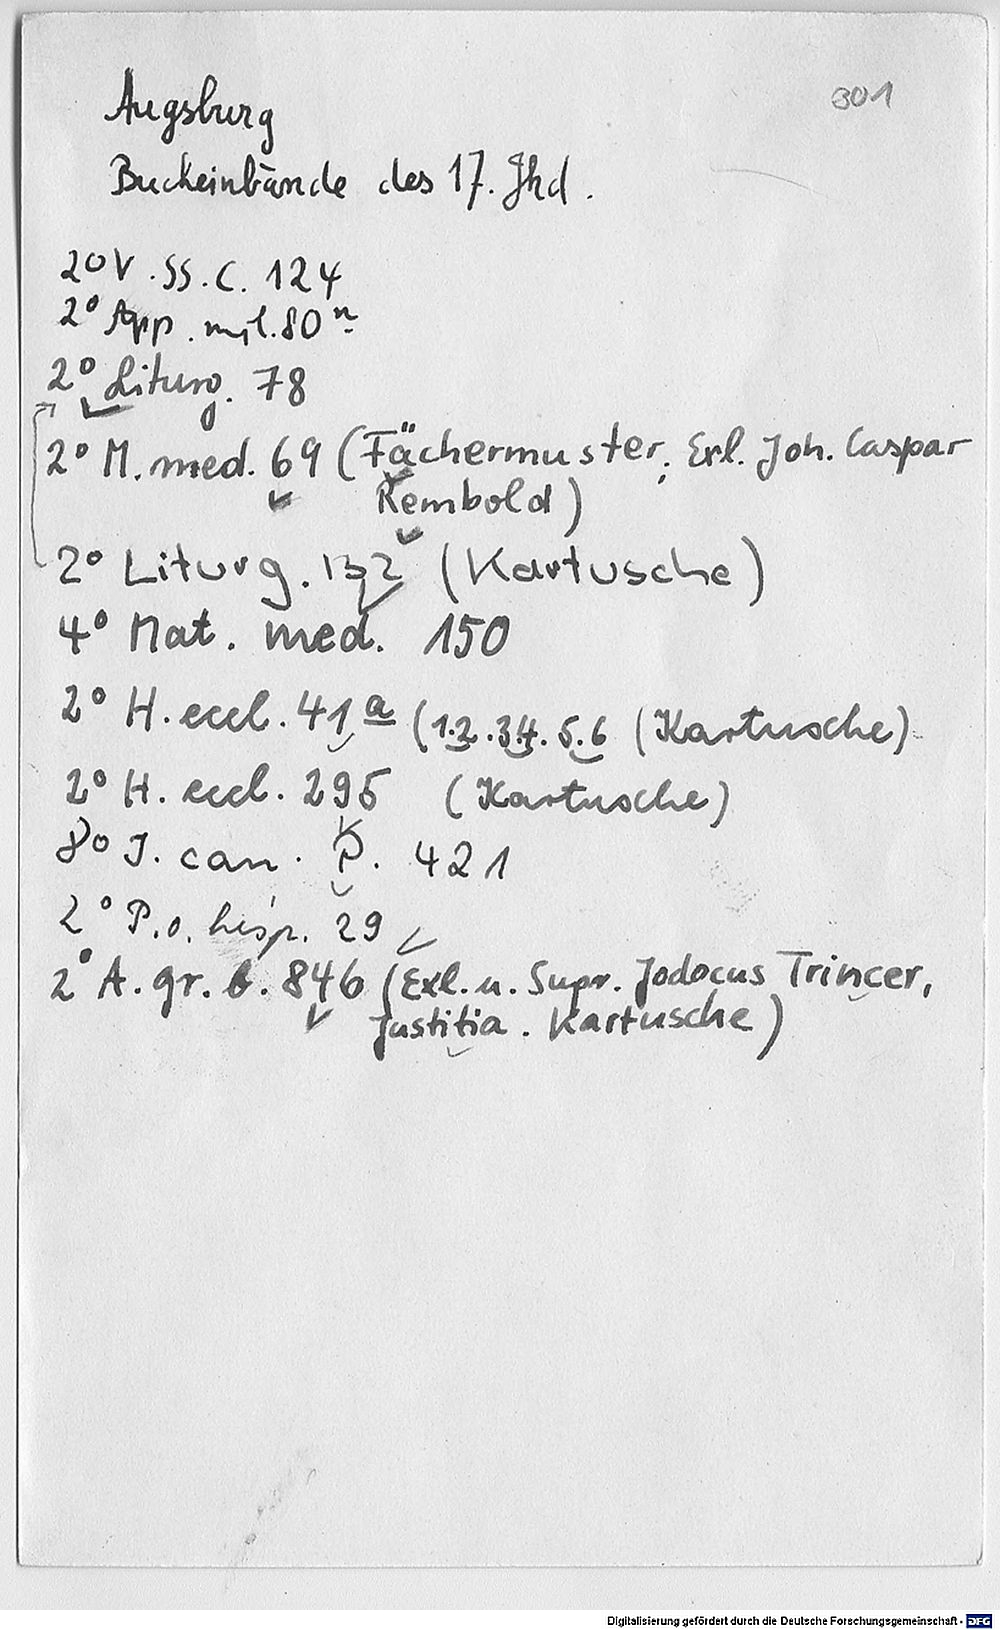 301
Augsburg
Bucheinbände des 17. Jhd.
2° V. SS. C. 124
2° App. mil. 80 n
2° Liturg. 78
2° M. med. 69 (Fächermuster, Exl. Joh. Caspar
Rembold)
2° Liturg. 132 (Kartusche)
4° Mat. med. 150
2° H. eccl. 41 a (1.2.3.4.5.6 (Kartusche)
2° H. eccl. 295 (Kartusche)
8° J. can. P. 421
2° P. o. hisp. 29
2° A. gr. b. 846 (Exl. u. Supr. Jodocus Trincer,
Justitia. Kartusche)
Digitalisierung gefördert durch die Deutsche Forschungsgemeinschaft - DFG